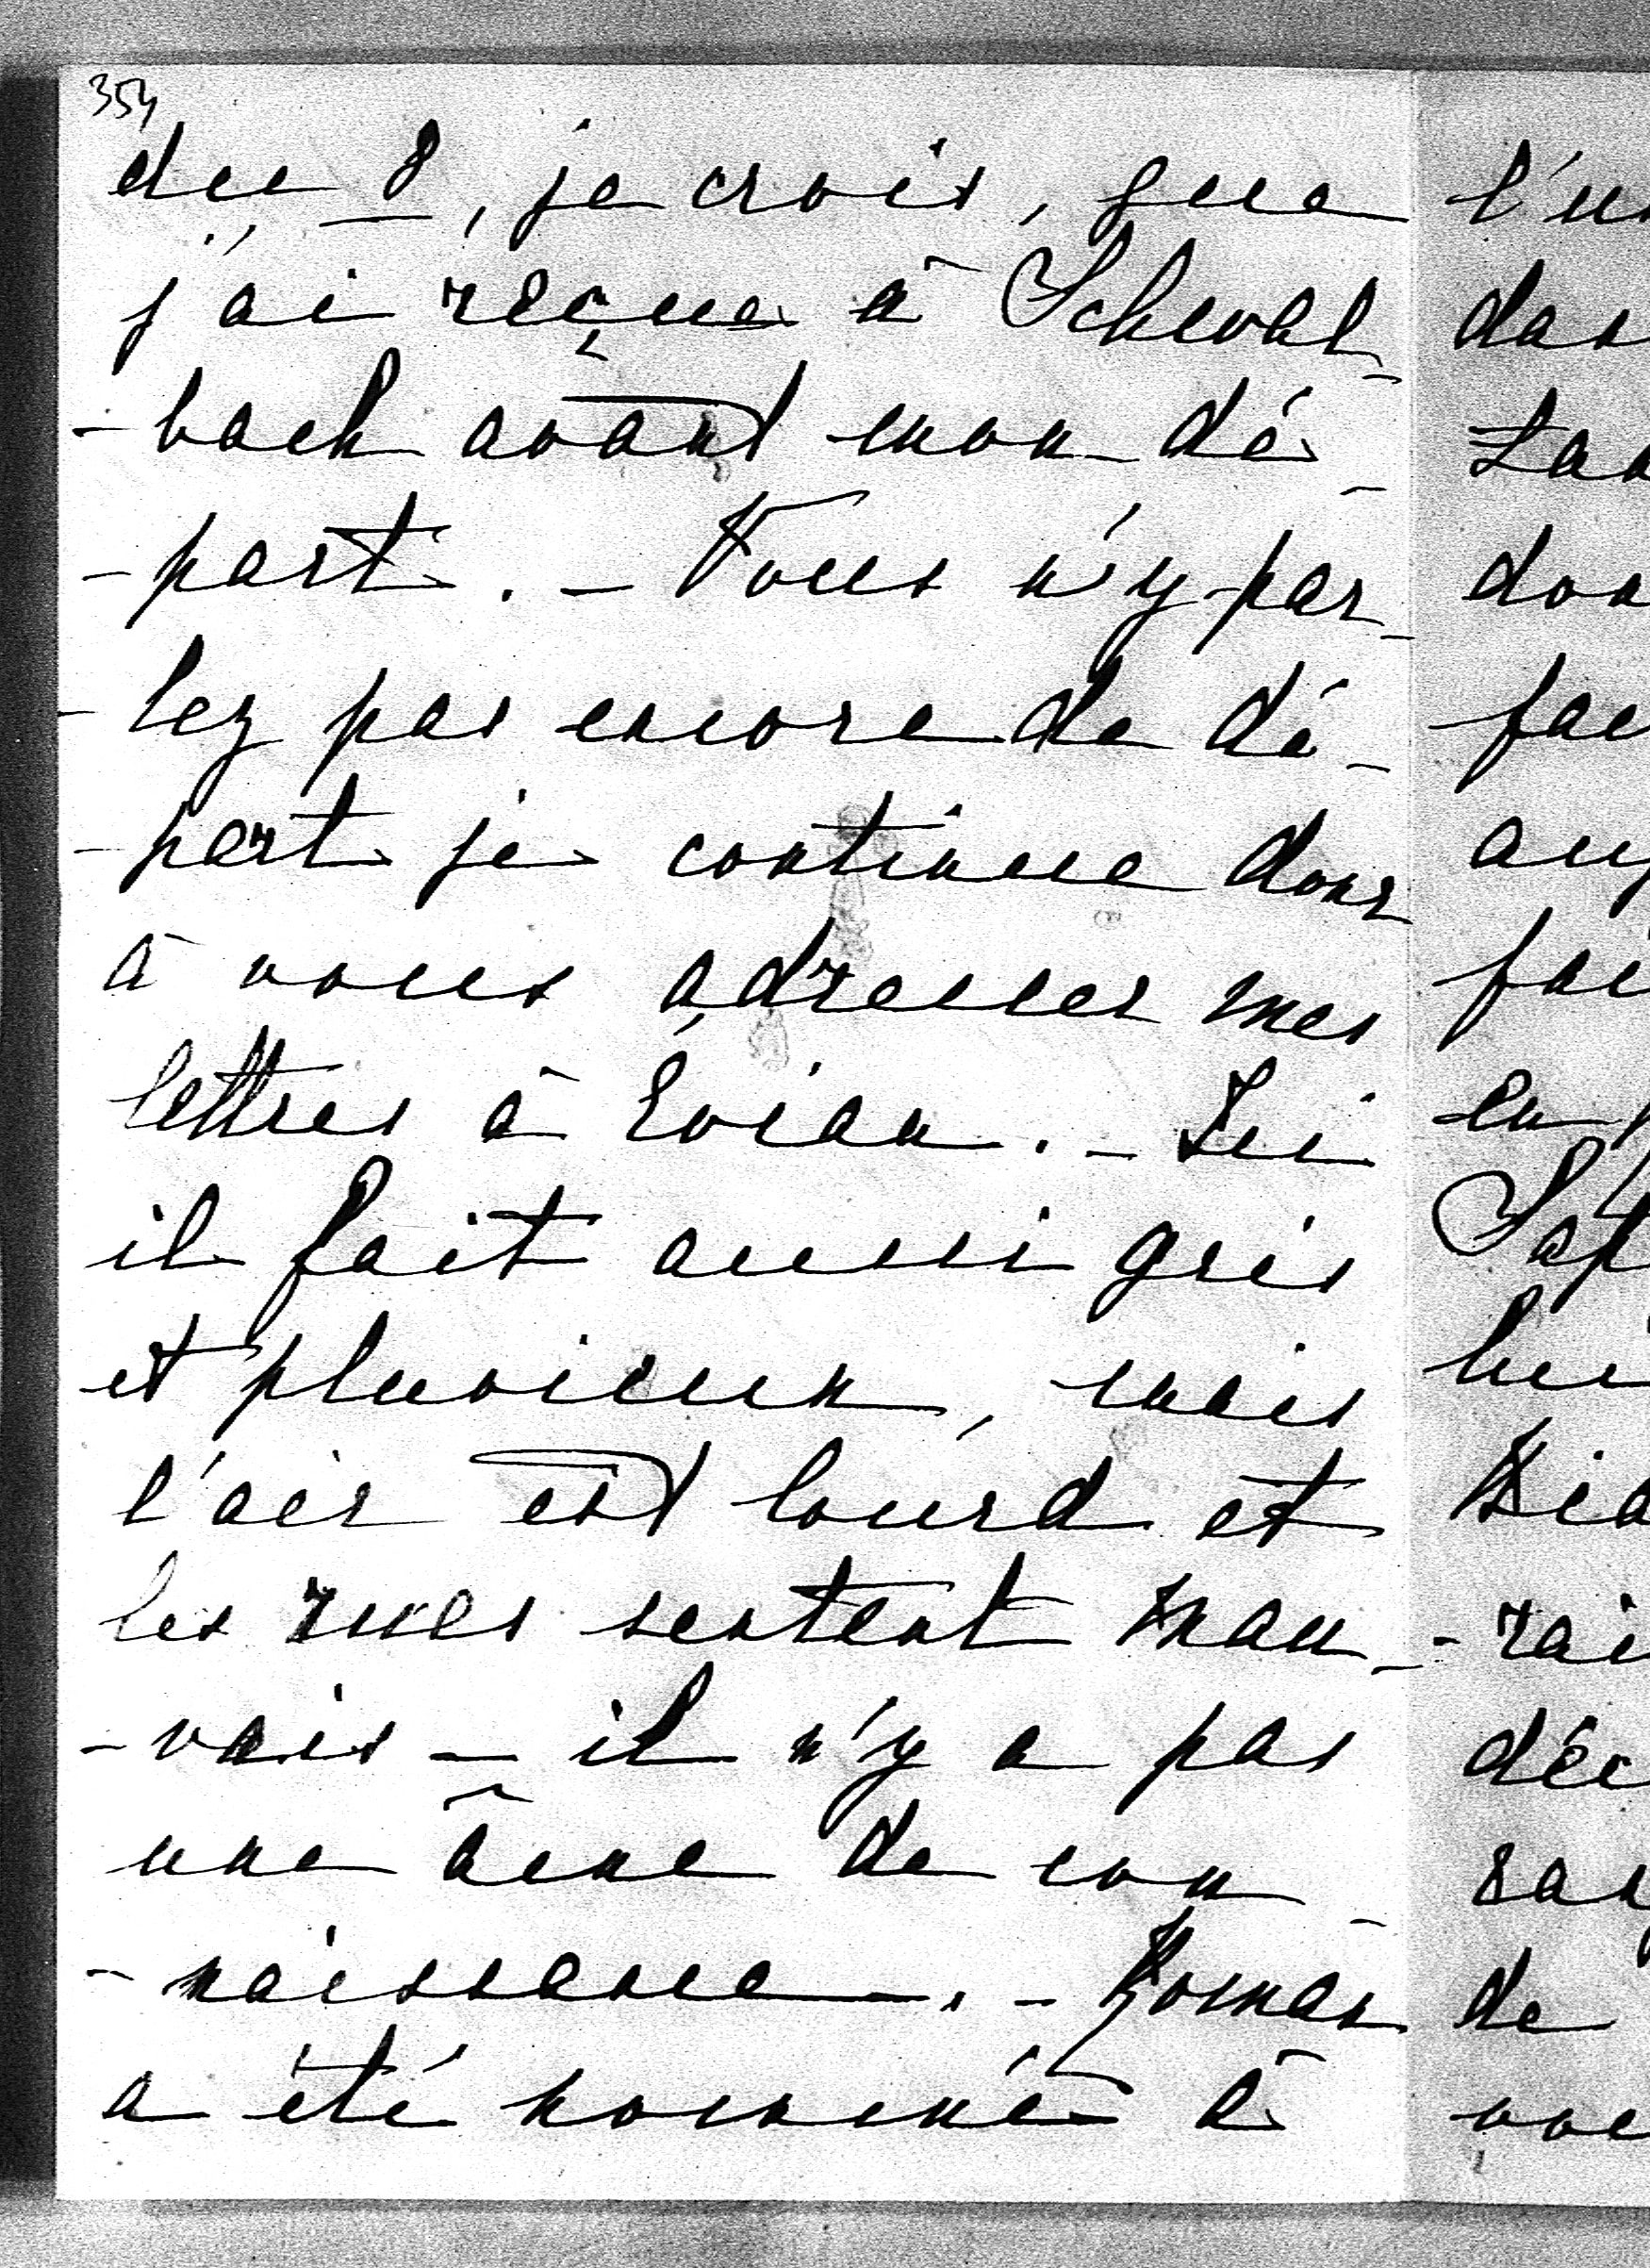 354
du 8, je crois, que
j'ai reçue à Schwal-
-bach avant mon dé-
-part. - Vous n'y par-
-lez pas encore de dé-
-part je continue donc
à vous adresser mes
lettres à Évian. - Ici
il fait aussi gris
et pluvieux, mais
l'air est lourd et
les rues sentent mau-
-vais - il n'y a pas
une âme de con-
-naissance. - Roman
a été nommé à